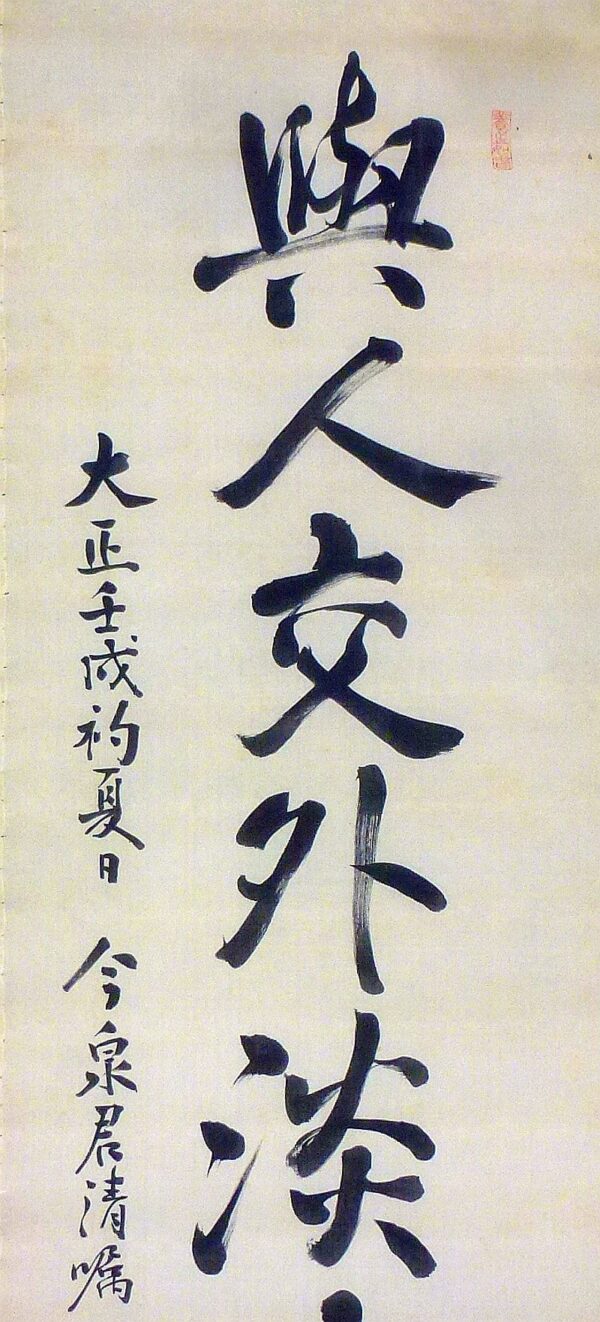 與人交外淡
大正壬戌礿夏日 今泉君清嘱